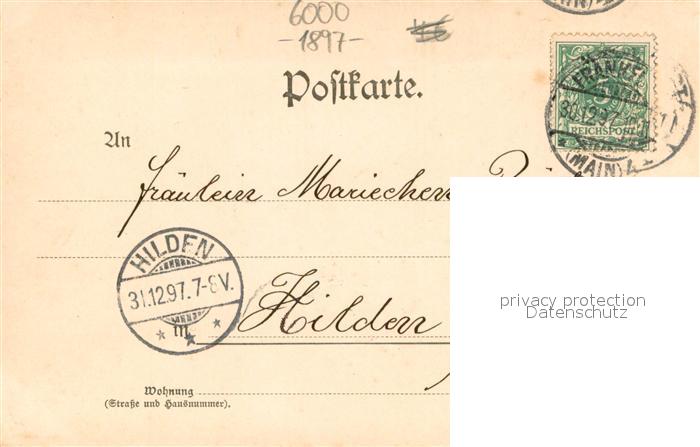 6000
-1897-
Postkarte.
FRANKFURT
30.12.97.
(MAIN) 4
REICHSPOST
An
Fräulein Mariechen
HILDEN
31.12.97. 7-8V.
Hilden
privacy protection
Datenschutz
Wohnung
(Straße und Hausnummer).